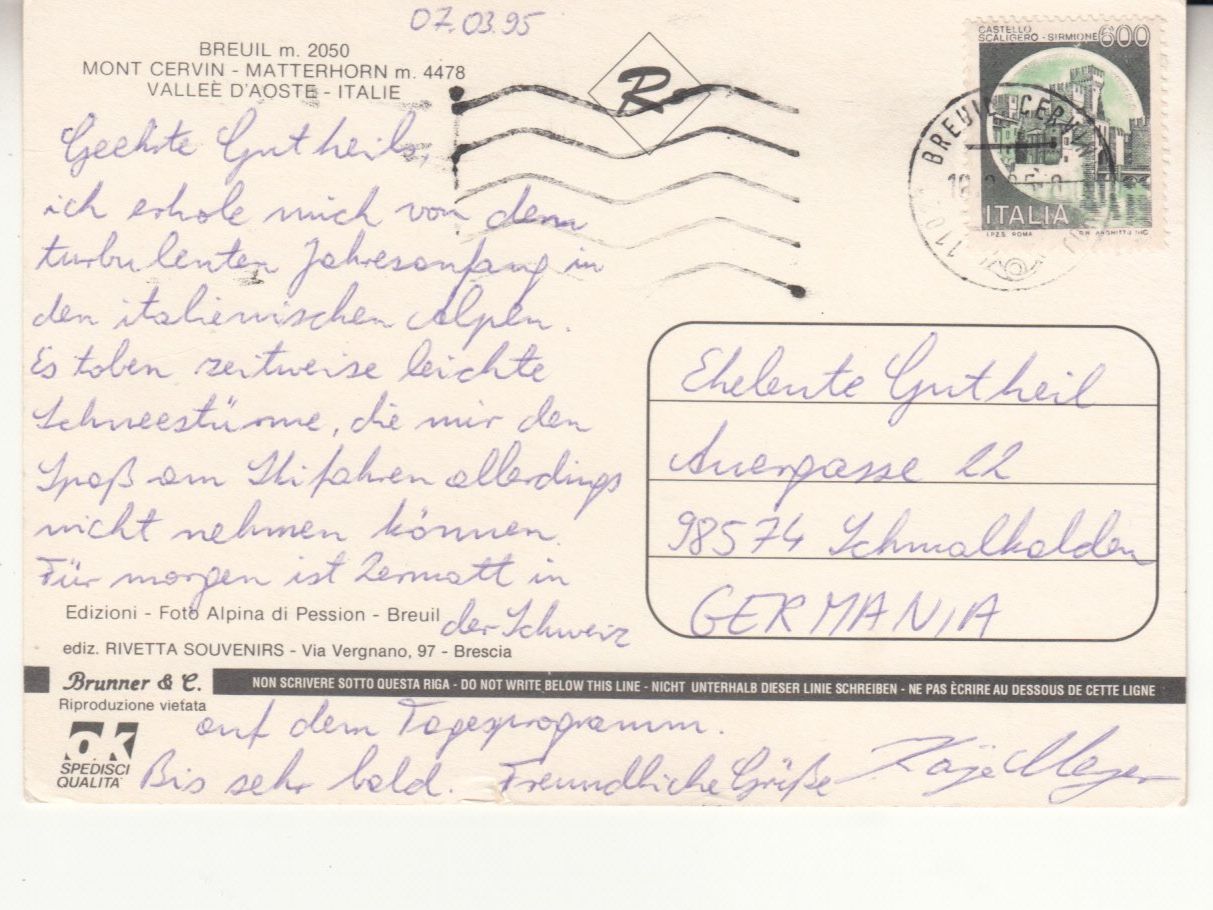 07.03.95
BREUIL m. 2050
MONT CERVIN - MATTERHORN m. 4478
VALLEÈ D'AOSTE - ITALIE
Geehrte Gutheils,
ich erhole mich von dem
turbulenten Jahresanfang in
den italienischen Alpen.
Es toben zeitweise leichte
Schneestürme, die mir den
Spaß am Skifahren allerdings
nicht nehmen können.
Für morgen ist Zermatt in
der Schweiz
auf dem Tagesprogramm.
Bis sehr bald. Freundliche Grüße
Meyer
Edizioni - Foto Alpina di Pession - Breuil
ediz. RIVETTA SOUVENIRS - Via Vergnano, 97 - Brescia
Brunner & C.
Riproduzione vietata
NON SCRIVERE SOTTO QUESTA RIGA - DO NOT WRITE BELOW THIS LINE - NICHT UNTERHALB DIESER LINIE SCHREIBEN - NE PAS ÈCRIRE AU DESSOUS DE CETTE LIGNE
ok
SPEDISCI
QUALITA'
R
CASTELLO
SCALIGERO - SIRMIONE
600
ITALIA
I.P.Z.S. ROMA
BREUIL CERVINIA
Eheleute Gutheil
Auergasse 22
98574 Schmalkalden
GERMANIA